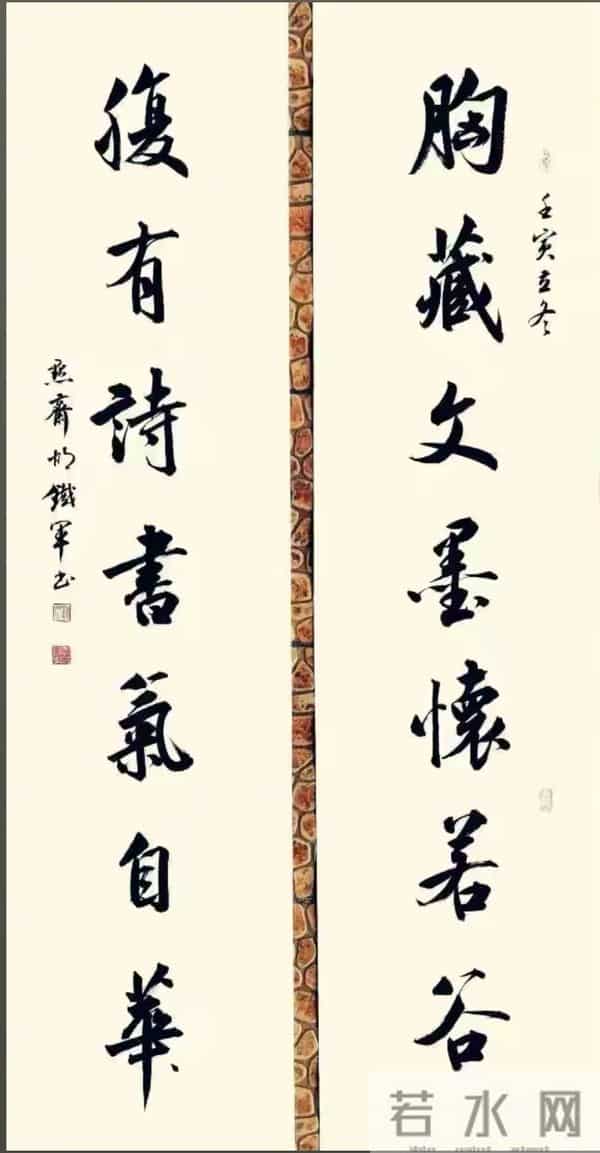 胸藏文墨懷若谷
壬寅立冬
腹有詩書氣自華
齋胡鐵軍书
若水网